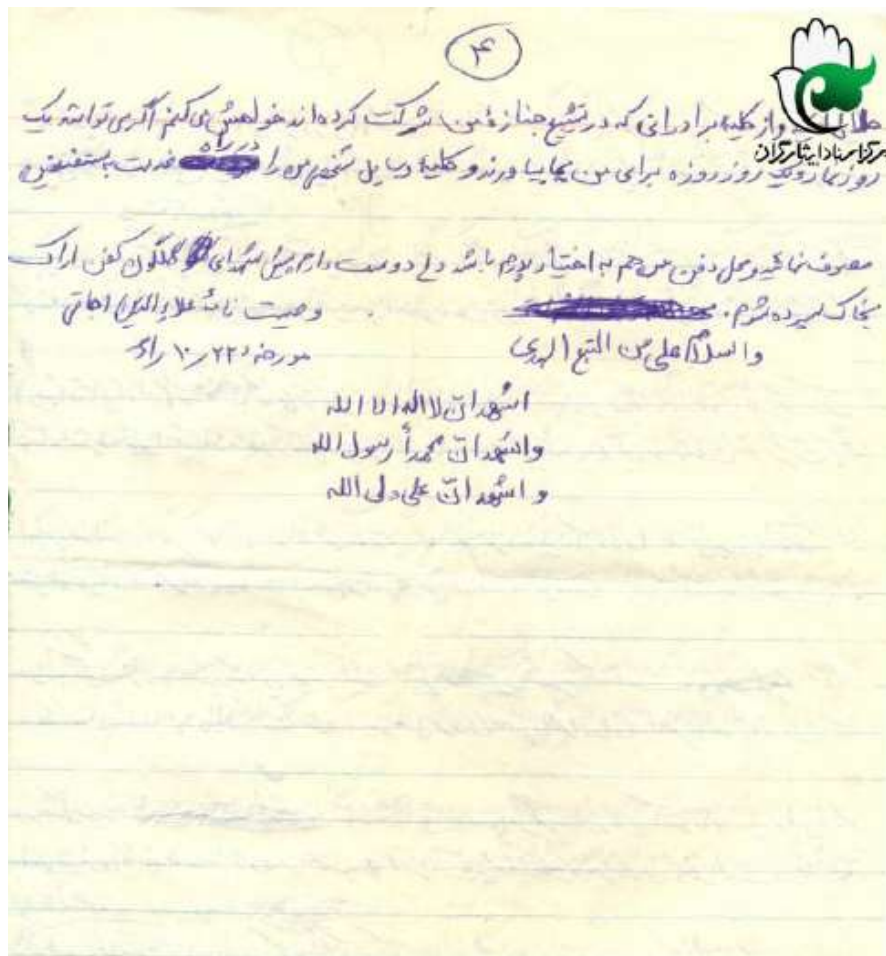 ۴
وازکلیه برادرانی که در تشیع جنازهٔ من شرکت کرده اند خواهش می کنم اگر می توانند یک
مرکز اسناد ایثارگران
روز نماز و یک روز روزه برای من بجا بیاورند و کلیهٔ وسایل شخصی من را در راه خدمت بمستضعفین
مصرف نمائید و محل دفن من هم به اختیار پدرم باشد ولی دوست دارم پیش شهدای گلگون کفن اراک
بخاک سپرده شوم.
وصیت نامهٔ علاءالدین
والسلام علی من التبع الهدی
مورخه ۲۲ر۱۰ر
اشهد انّ لا اله الا الله
واشهد انّ محمداً رسول الله
و اشهد انّ علی ولی الله